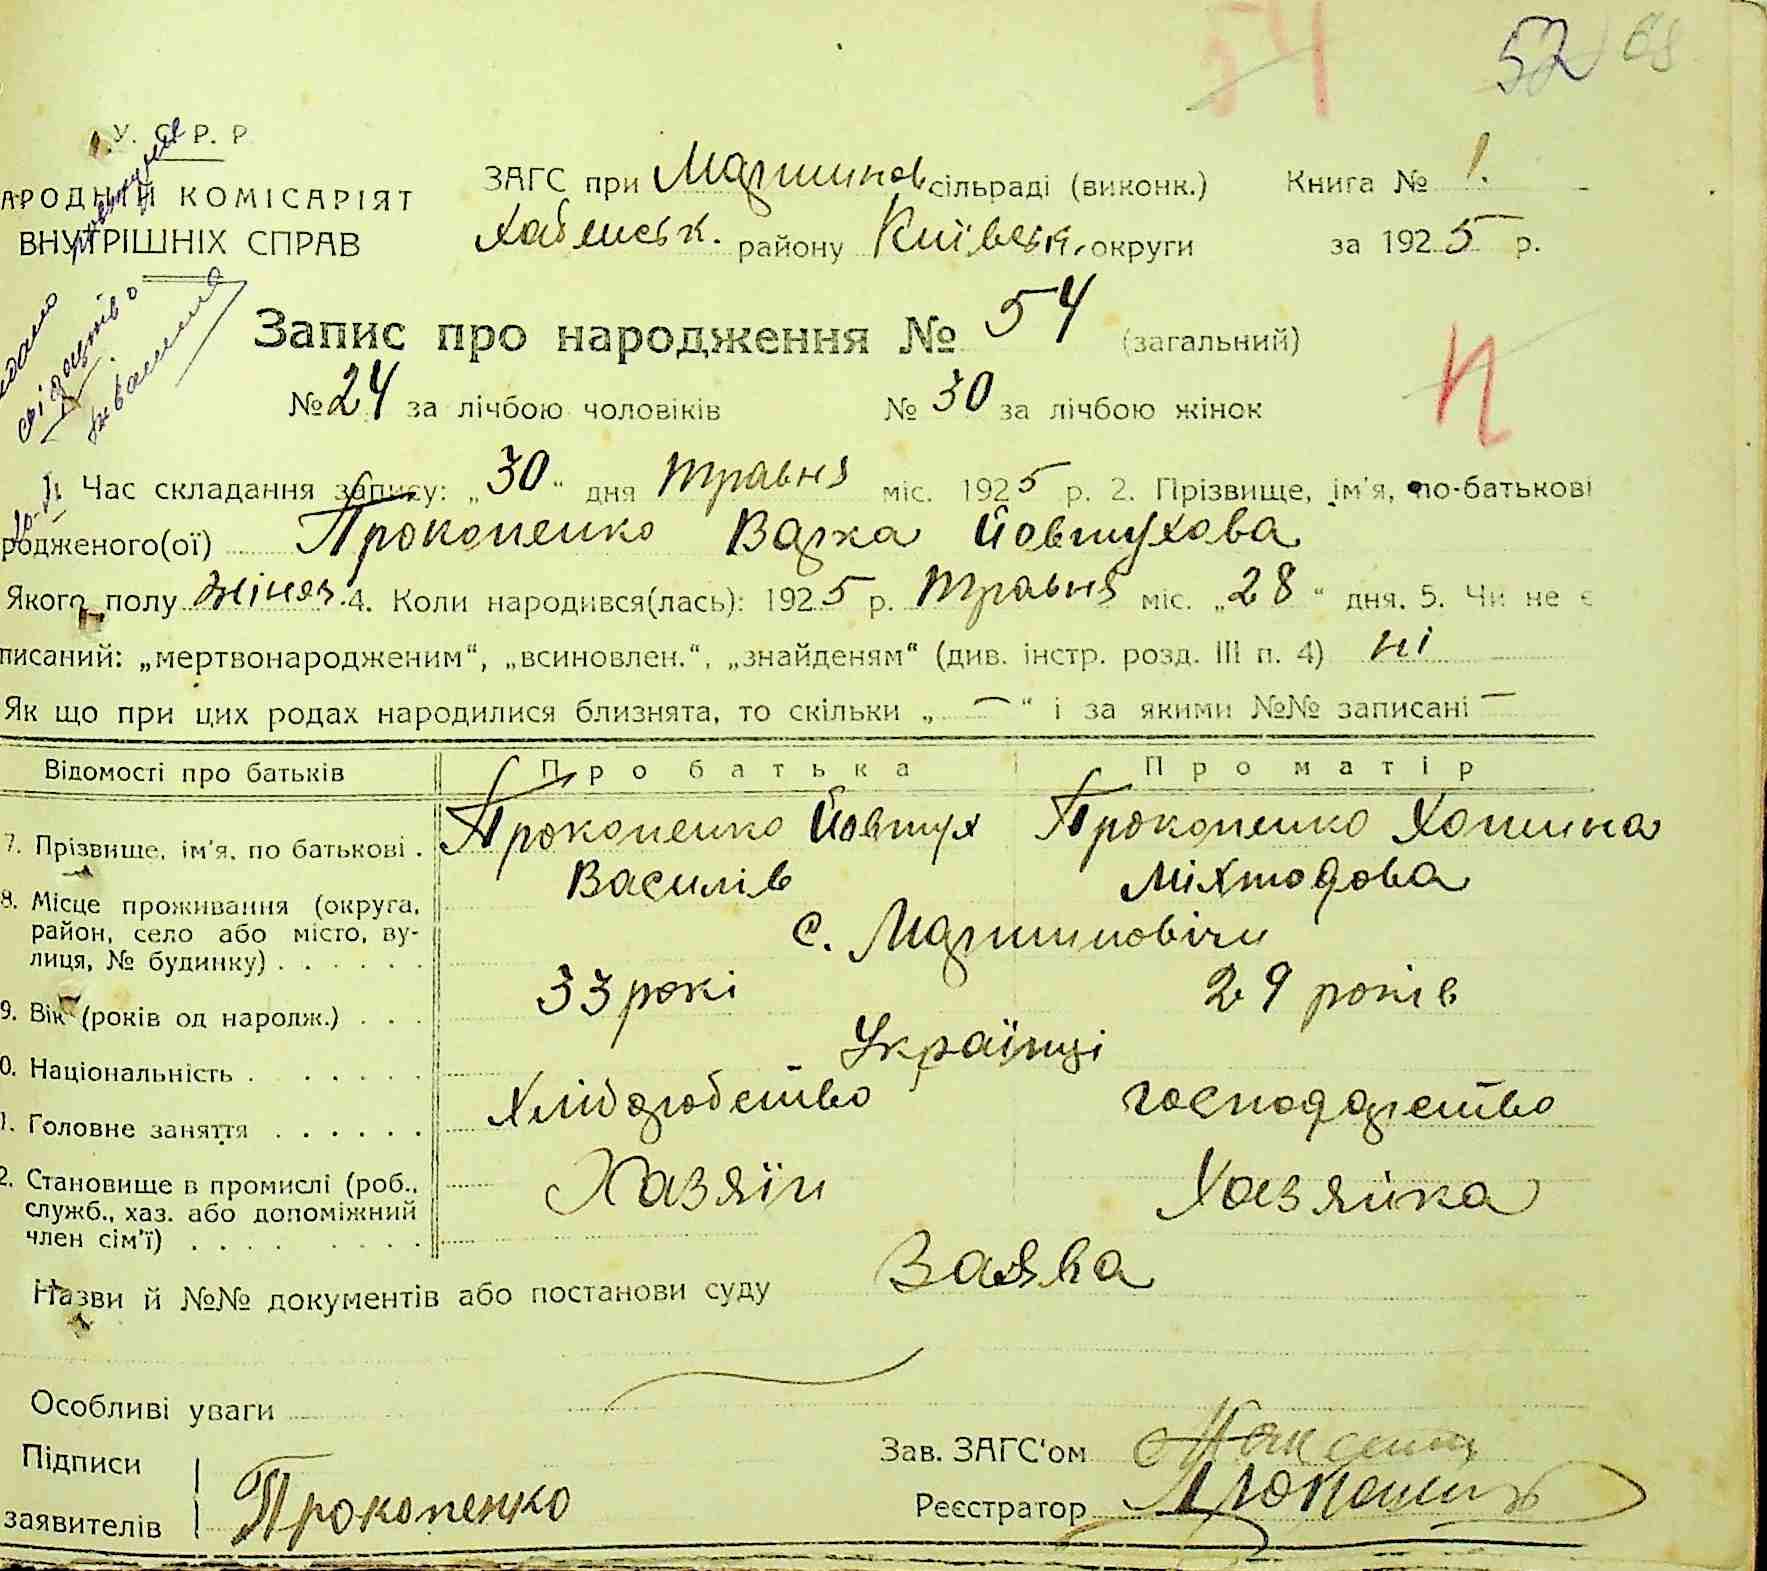 54 52
У. С. Р. Р.
АРОДНИЙ КОМІСАРІЯТ
ВНУТРІШНІХ СПРАВ
ЗАГС при Мартинов сільраді (виконк.) Книга № 1.
Хабенськ. району Київськ. округи за 1925 р.
Запис про народження № 54 (загальний)
№ 24 за лічбою чоловіків № 30 за лічбою жінок
П
Час складання запису: „30“ дня травня міс. 1925 р. 2. Прізвище, ім'я, по-батькові
родженого(ої) Прокопенко Варка Йовтухова
Якого полу жіноч. 4. Коли народився(лась): 1925 р. травня міс. „28“ дня. 5. Чи не є
писаний: „мертвонародженим“, „всиновлен.“, „знайденям“ (див. інстр. розд. III п. 4) ні
Як що при цих родах народилися близнята, то скільки „ — “ і за якими №№ записані —
Відомості про батьків Про батька Про матір
7. Прізвище, ім'я, по батькові . Прокопенко Йовтух Прокопенко Хотина
Василів Міхтодова
8. Місце проживання (округа, район, село або місто, вулиця, № будинку) . . . . . . с. Мартиновічи
9. Вік (років од народж.) . . . 33 рокі 29 років
0. Національність . . . . . . . Українці
1. Головне заняття . . . . . . Хліборобство господарство
2. Становище в промислі (роб., Хазяїн Хазяйка
служб., хаз. або допоміжний
член сім'ї) . . . . . . . .
Назви й №№ документів або постанови суду Заява
Особливі уваги
Підписи Зав. ЗАГС'ом
заявителів Прокопенко Реєстратор